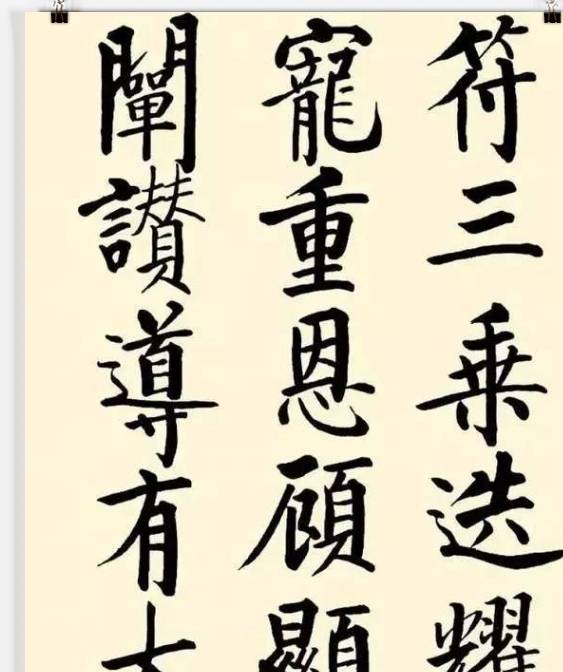 符三乗迭耀
寵重恩顧顯
闡讚導有